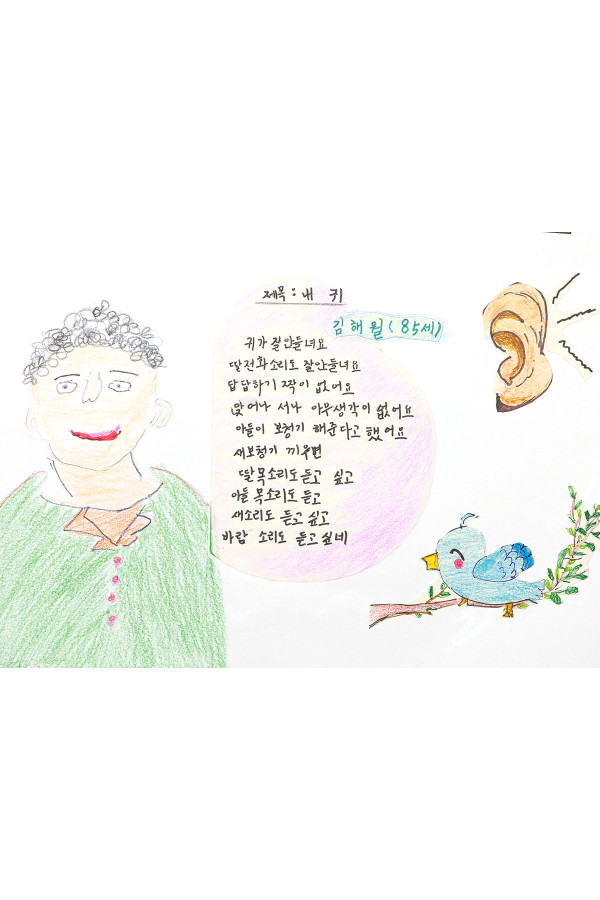 제목 : 내 귀
김해월 (85세)
귀가 잘안들녀요
딸전화소리도 잘안들녀요
답답하기 짝이 없어요
앉어나 서나 아무생각이 없어요
아들이 보청기 해준다고 했어요
새보청기 끼우면
딸목소리도듣고 싶고
아들 목소리도 듣고
새소리도 듣고 싶고
바람 소리도 듣고싶네